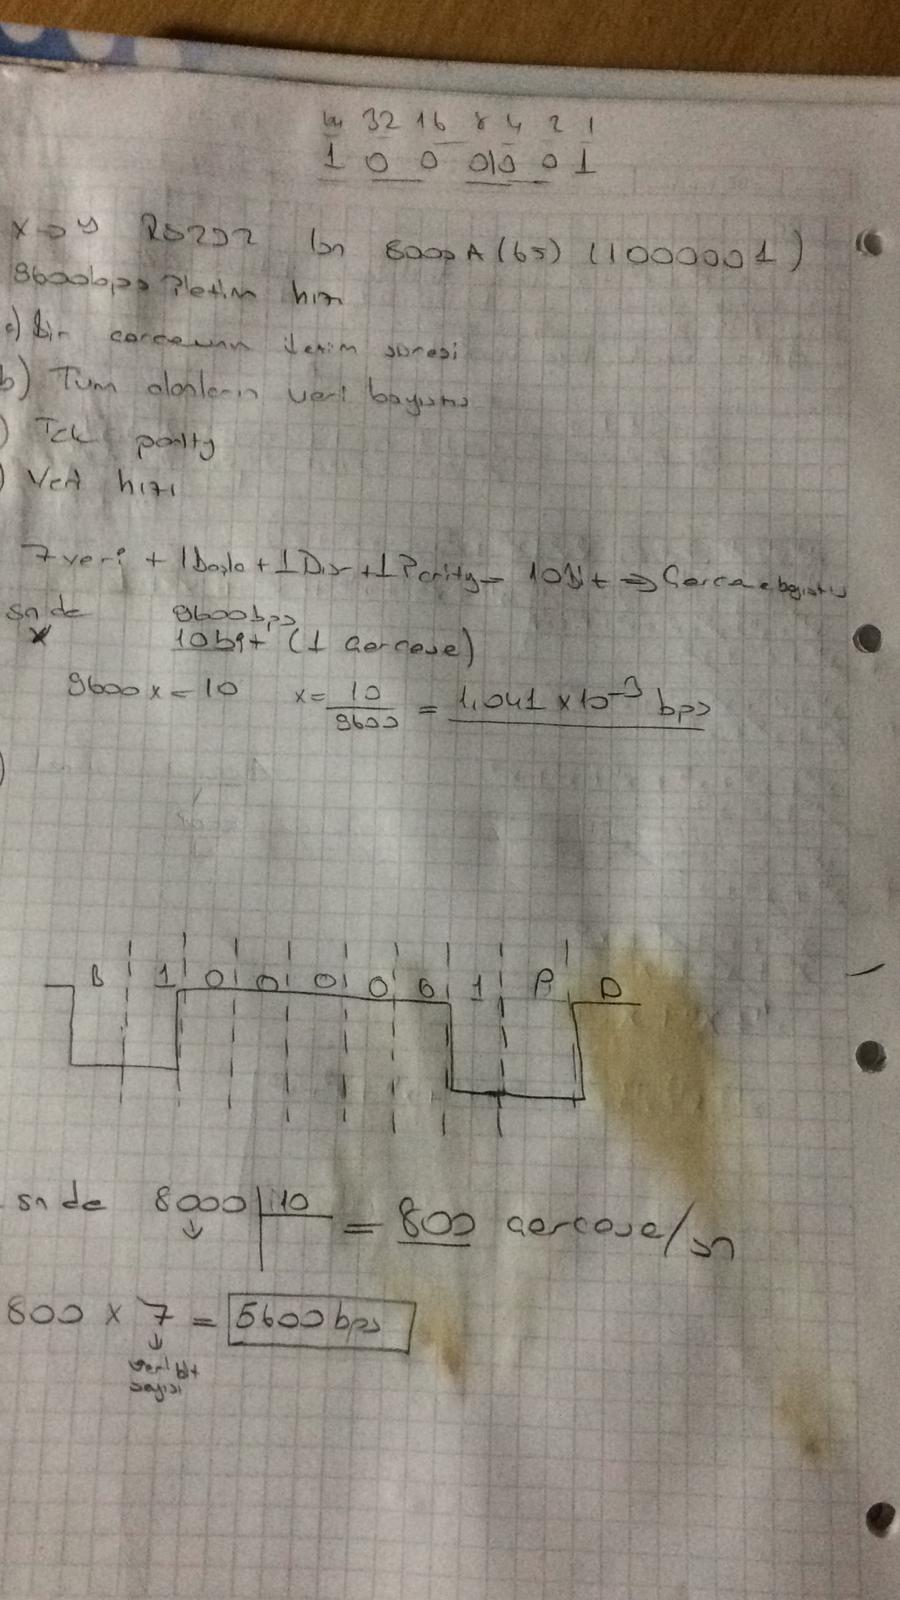 64 32 16 8 4 2 1
1 0 0 0 0 0 1
x → y RS232 8000 A (65) (1000001)
9600bps iletim hızı
a) Bir çerçevenin iletim süresi
b) Tüm alanların veri
) Tek parity
) Veri hızı
7 veri + 1 Başla + 1 Dur + 1 Parity = 10 Bit ⇒
sn de 9600bps
x 10bit (1 çerçeve)
9600x = 10 x = 10/9600 = 1,041 x 10⁻³ bps
)
B 1 0 0 0 0 0 1 P D
sn de 8000 | 10 = 800 çerçeve/sn
800 x 7 = 5600bps
veri bit
sayısı